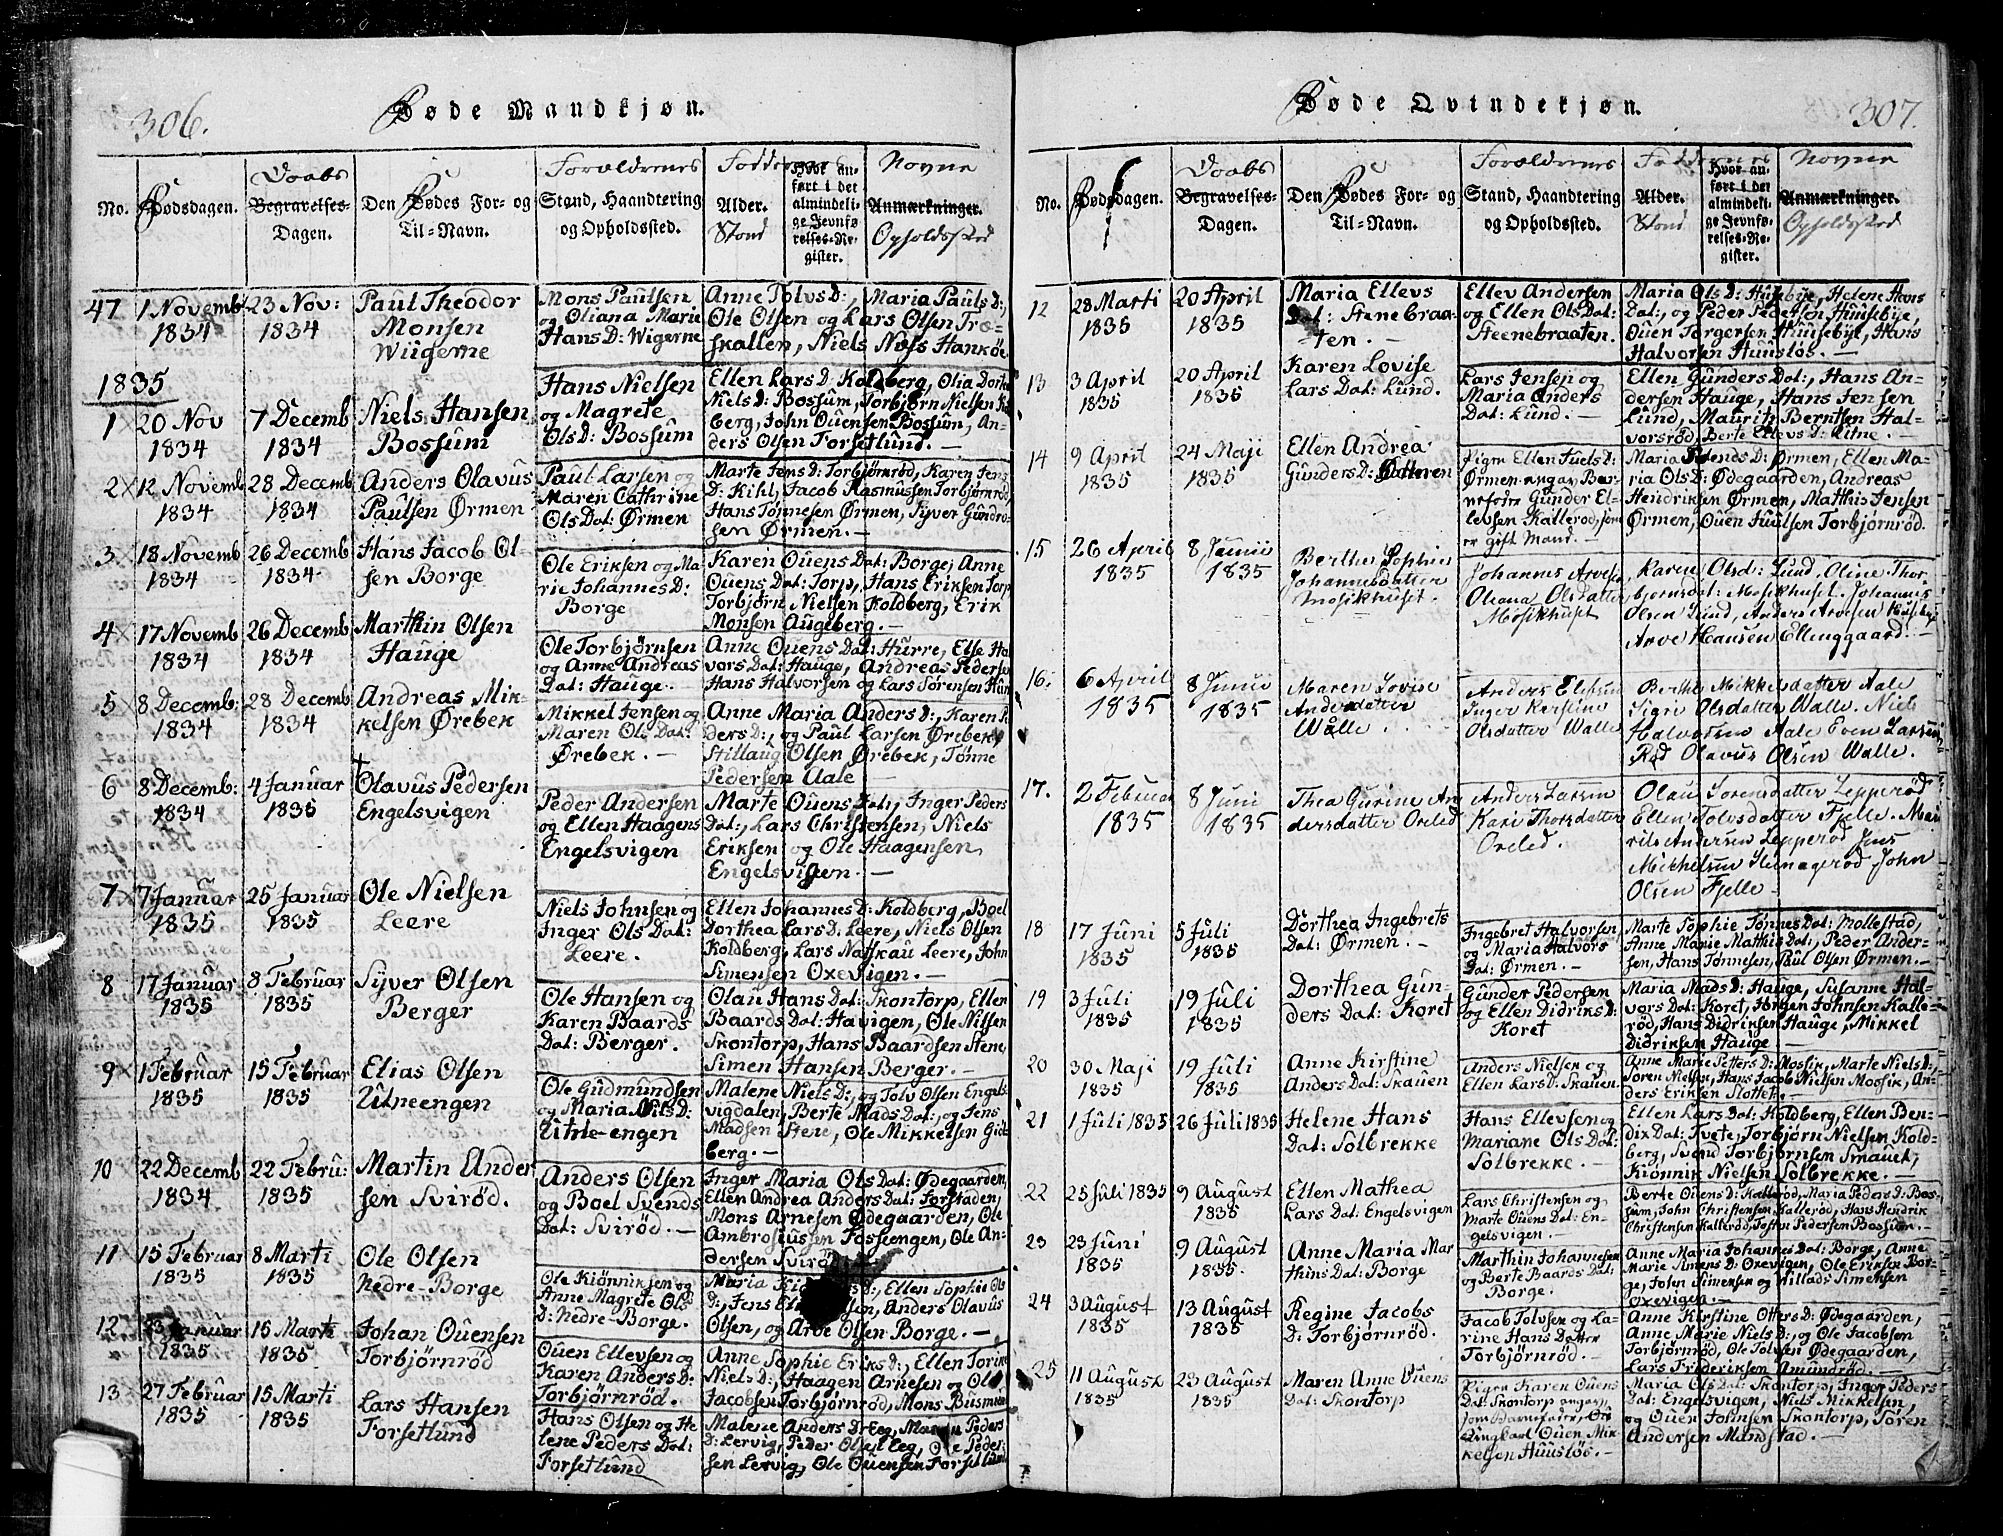 306.
Føde Mandkjøn.
No.
Fødsdagen.
Daabs
Begravelses-
Dagen.
Den Fødes For- og
Til-Navn.
Forældrenes
Stand, Haandtering
og Opholdssted.
Faddernes
Alder.
Stand
Hvor an-
ført i det
almindeli-
ge Jevnfø-
relses-Re-
gister.
Navne
Anmærkninger.
Opholdssted
47
1 Novemb
1834
23 Nov:
1834
Paul Theodor
Monsen
Wiigerne
Mons Paulsen
og Oliana Marie
Hans D: Wigerne
Anne Tolvs D:, Maria Pauls D:,
Ole Olsen og Lars Olsen Træ-
skallen, Niels Næss Hankøe
1835
1 ×
20 Nov
1834
7 Decemb
1834
Niels Hansen
Bossum
Hans Nielsen
og Magrete
Ols D: Bossum
Ellen Lars D: Koldberg, Olia Dorthe
Niels D: Bossum, Torbjørn Nielsen Kol
berg, John Ouensen Bossum, An-
ders Olsen Forsetlund. —
2 ×
12 Novemb
1834
28 Decemb
1834
Anders Olavus
Paulsen Ørmen
Paul Larsen og
Maren Cathrine
Ols Dat: Ørmen
Marte Jens D: Torbjørnrød, Karen Jens
D: Kihl, Jacob Rasmussen Torbjørnrød,
Hans Tønnesen Ørmen, Syver Gundro-
sen Ørmen. —
3 ×
18 Novemb
1834
26 Decemb
1834
Hans Jacob Ol-
sen Borge
Ole Eriksen og Ma
rie Johannes D:
Borge
Karen Ouens Dat: Borge, Anne
Ouens Dat: Torp, Hans Eriksen Torp
Torbjørn Nielsen Koldberg, Erik
Monsen Augeberg. —
4 ×
17 Novemb
1834
26 Decemb
1834
Marthin Olsen
Hauge
Ole Torbjørnsen
og Anne Andreas
Dat: Hauge. —
Anne Ouens Dat: Hurre, Else Hal
vors Dat: Hauge, Andreas Pedersen
Hans Halvorsen og Lars Sørensen Hun
5 ×
8 Decemb:
1834
28 Decemb
1834
Andreas Mik-
kelsen Ørebek
Mikkel Jensen og
Maren Ols Dat:
Ørebek. —
Anne Maria Anders D:, Karen P
ders D:, og Paul Larsen Ørebek,
Stillaug Olsen Ørebek, Tønne
Pedersen Aale —
6
8 Decemb:
1834
4 Januar
1835
†
Olavus Pedersen
Engelsvigen
Peder Andersen
og Ellen Haagens
Engelsvigen
Marte Ouens Dat:, Inger Peders
Dat:, Lars Christensen, Niels
Eriksen og Ole Haagensen
Engelsvigen. —
7 ×
7 Januar
1835
25 Januar
1835
Ole Nielsen
Leere
Niels Johnsen og
Inger Ols Dat:
Leere. —
Ellen Johannes D: Koldberg, Boel
Dorthea Lars D: Leere, Niels Olsen
Koldberg, Lars Natskau Leere, John
Simensen Oxevigen. —
8
17 Januar
1835
8 Februar
1835
Syver Olsen
Berger
Ole Hansen og
Karen Baards
Dat: Berger.
Olau Hans Dat: Skontorp, Ellen
Baards Dat: Havigen, Ole Nilsen
Skontorp, Hans Baardsen Stene
Simen Hansen Berger. —
9 ×
1 Februar
1835
15 Februar
1835
Elias Olsen
Zitneengen
Ole Gudmundsen
og Maria Nils D:
Zitne-engen
Malene Niels D:, og Tolv Olsen Engels
vigdalen, Berte Mads Dat:, og Jens
Madsen Stene, Ole Mikkelsen Gide
berg. —
10
22 Decemb
1834
22 Febru:
1835
Martin Ander
sen Svirød.
Anders Olsen
og Boel Svends
Dat: Svirød. —
Inger Maria Ols Dat: Ødegaarden,
Ellen Andrea Anders Dat: Forstaden,
Mons Arnesen Ødegaarden, Ole
Ambrosiussen Fosseengen, Ole An-
dersen Svirød
11
15 Februar
1835
8 Marti
1835
Ole Olsen
Nedre-Borge
Ole Kiønniksen og
Anne Magrete Ols
D: Nedre-Borge.
Maria D:, Ellen Sophie Ols
D:, Jens Anders Olavus
Olsen, og Arve Olsen Borge. —
12
Januar
1835
15 Marti
1835
Johan Ouensen
Torbjørnrød
Ouen Ellevsen og
Karen Anders D:
Torbjørnrød.
Anne Sophie Eriks D:, Ellen Torine
Niels D:, Haagen Arnesen og Ole
Jacobsen Torbjørnrød, Mons Busmoen
13
27 Februar
1835
15 Marti
1835
Lars Hansen
Forsetlund
Hans Olsen og He
lene Peders Dat:
Forsetlund
Malene Anders D: Eeg, Maren Peders
D: Lervig, Peder Olsen Eeg, Ole Peder
sen Lervig, Ole Ouensen Forsetlund
307.
Føde Qvindekjøn.
No.
Fødsdagen.
Daabs
Begravelses-
Dagen.
Den Fødes For- og
Til-Navn.
Forældrenes
Stand, Haandtering
og Opholdssted.
Faddernes
Alder.
Stand
Hvor an-
ført i det
almindeli-
ge Jevnfø-
relses-Re-
gister.
Navne
Anmærkninger.
Opholdssted
12
28 Marti
1835
20 April
1835
Maria Ellevs
Dat: Stenebraa-
ten. —
Ellev Andersen
og Ellen Ols Dat:
Steenebraaten.
Maria Ols D: Huusebye, Helene Hans
Dat:, og Peder Pedersen Huusebye,
Ouen Torgersen Huusebye, Hans
Halvorsen Huusløs. —
13
3 April
1835
20 April
1835
Karen Lovise
Lars Dat: Lund.
Lars Jensen og
Maria Anders
Dat: Lund. —
Ellen Gunders Dat:, Hans An-
dersen Hauge, Hans Jensen
Lund, Mauritz Berntsen Hal-
vorsrød, Berte Ellevs D: Zitne. —
14
9 April
1835
24 Maji
1835
Ellen Andrea
Gunders D: Ørmen
Pigen Ellen Juels D:
Ørmen angav Bar-
nefader Gunder El-
levsen Kallerød, som
er gift Mand. —
Maria Svends D: Ørmen, Ellen Ma-
ria Ols D: Ødegaarden, Andreas
Hendriksen Ørmen, Mathis Jensen
Ørmen, Ouen Juulsen Torbjørnrød.
15
26 April
1835
8 Junii
1835
Berthe Sophie
Johannesdatter
Mosikhuset.
Johannes Arvesen
Oleana Olsdatter
Mosikhuset
Karine Olsd: Lund, Oline Thor-
bjørnsdat: Mosikhuset. Johannes
Olsen Lund, Anders Arvesen Huseby,
Arve Hansen Ellinggaard. —
16.
6 April
1835
8 Junii
1835
Maren Lovise
Andersdatter
Walle.
Anders Elefsen
Inger Kerstine
Olsdatter Walle
Berthe Mikkelsdatter Aale
Sigri Olsdatter Walle. Niels
Halvorsen Aale Even Larsen
Rød Olavus Olsen Walle.
17.
2 Februar
1835
8 Juni
1835
Thea Gurine An
dersdatter Oreled
Anders Larsen
Kari Thorsdatter
Oreled.
Olau Sørensdatter Lepperød
Ellen Tolvsdatter Fjelle. Mau
rits Andersen Lepperød Jens
Mickhelsen Slunagerød John
Olsen Fjelle —
18
17 Juni
1835
5 Juli
1835
Dorthea Ingebrets
Dat: Ørmen. —
Ingebret Halvorsen,
og Maria Halvors
Dat: Ørmen. —
Marte Sophie Tønnes Dat: Mollestad,
Anne Marie Mathis Dat:, Peder Ander-
sen, Hans Tønnesen, Paul Olsen Ørmen. —
19
3 Juli
1835
19 Juli
1835
Dorthea Gun-
ders Dat: Koret
Gunder Pedersen
og Ellen Didriks D:
Koret
Maria Mads D: Hauge, Susanne Hal-
vors Dat: Koret, Jørgen Johnsen Kalle-
rød, Hans Didriksen Hauge, Mikkel
Didriksen Hauge —
20
30 Maji
1835
19 Juli
1835
Anne Kirstine
Anders Dat: Skauen
Anders Nielsen og
Ellen Lars D: Skauen.
Anne Marie Petters D: Mossik, Marte Niels D:
Søren Nielsen, Hans Jacob Nielsen Mossik, An-
ders Eriksen Slottet. —
21
1 Juli 1835
26 Juli 1835
Helene Hans
Dat: Solbrekke
Hans Ellevsen og
Mariane Ols Dat:
Solbrekke. —
Ellen Lars Dat: Koldberg, Ellen Ben-
dix Dat: Tvete, Torbjørn Nielsen Kold-
berg, Svend Torbjørnsen Smauet,
Kiønnik Nielsen Solbrekke. —
22
25 Juli 1835
9 August
1835
Ellen Mathea
Lars Dat: Engelsvigen
Lars Christensen og
Marte Ouens Dat: En-
gelsvigen. —
Berte Ouens D: Kallerød, Maria Peders D: Bos-
sum, John Christensen Kallerød, Hans Hendrik
Christensen Kallerød, Tosten Pedersen Bossum. —
23
23 Juni
1835
9 August
1835.
Anne Maria Mar
thins Dat: Borge
Marthin Johannesen
og Berte Baards Dat:
Borge.
Anne Maria Johannes Dat: Borge, Anne
Marie Simens D: Oxevigen, Ole Eriksen Bor-
ge, John Simensen og Willads Simensen
Oxevigen. —
24
3 August
1835
13 August
1835
Regine Jacobs
D: Torbjørnrød.
Jacob Tolvsen og Ka-
rine Hans Datter
Torbjørnrød.
Anne Kirstine Otters D: Ødegaarden,
Anne Marie Niels D:, og Ole Jacobsen
Torbjørnrød, Ole Tolvsen Ødegaarden,
Lars Frideriksen Amundrød. —
25
11 August
1835
23 August
1835
Maren Anne Ouens
Dat: Skontorp
Pigen Karen Ouens
Dat: Skontorp angav,
som Barnefader,
Ungkarl Ouen Mik-
kelsen Huusløs. —
Maria Ols Dat: Skontorp, Inger Peders
Dat: Engelsvigen, Niels Mikkelsen,
og Ouen Johnsen Skontorp, Søren
Andersen Mundstad. —